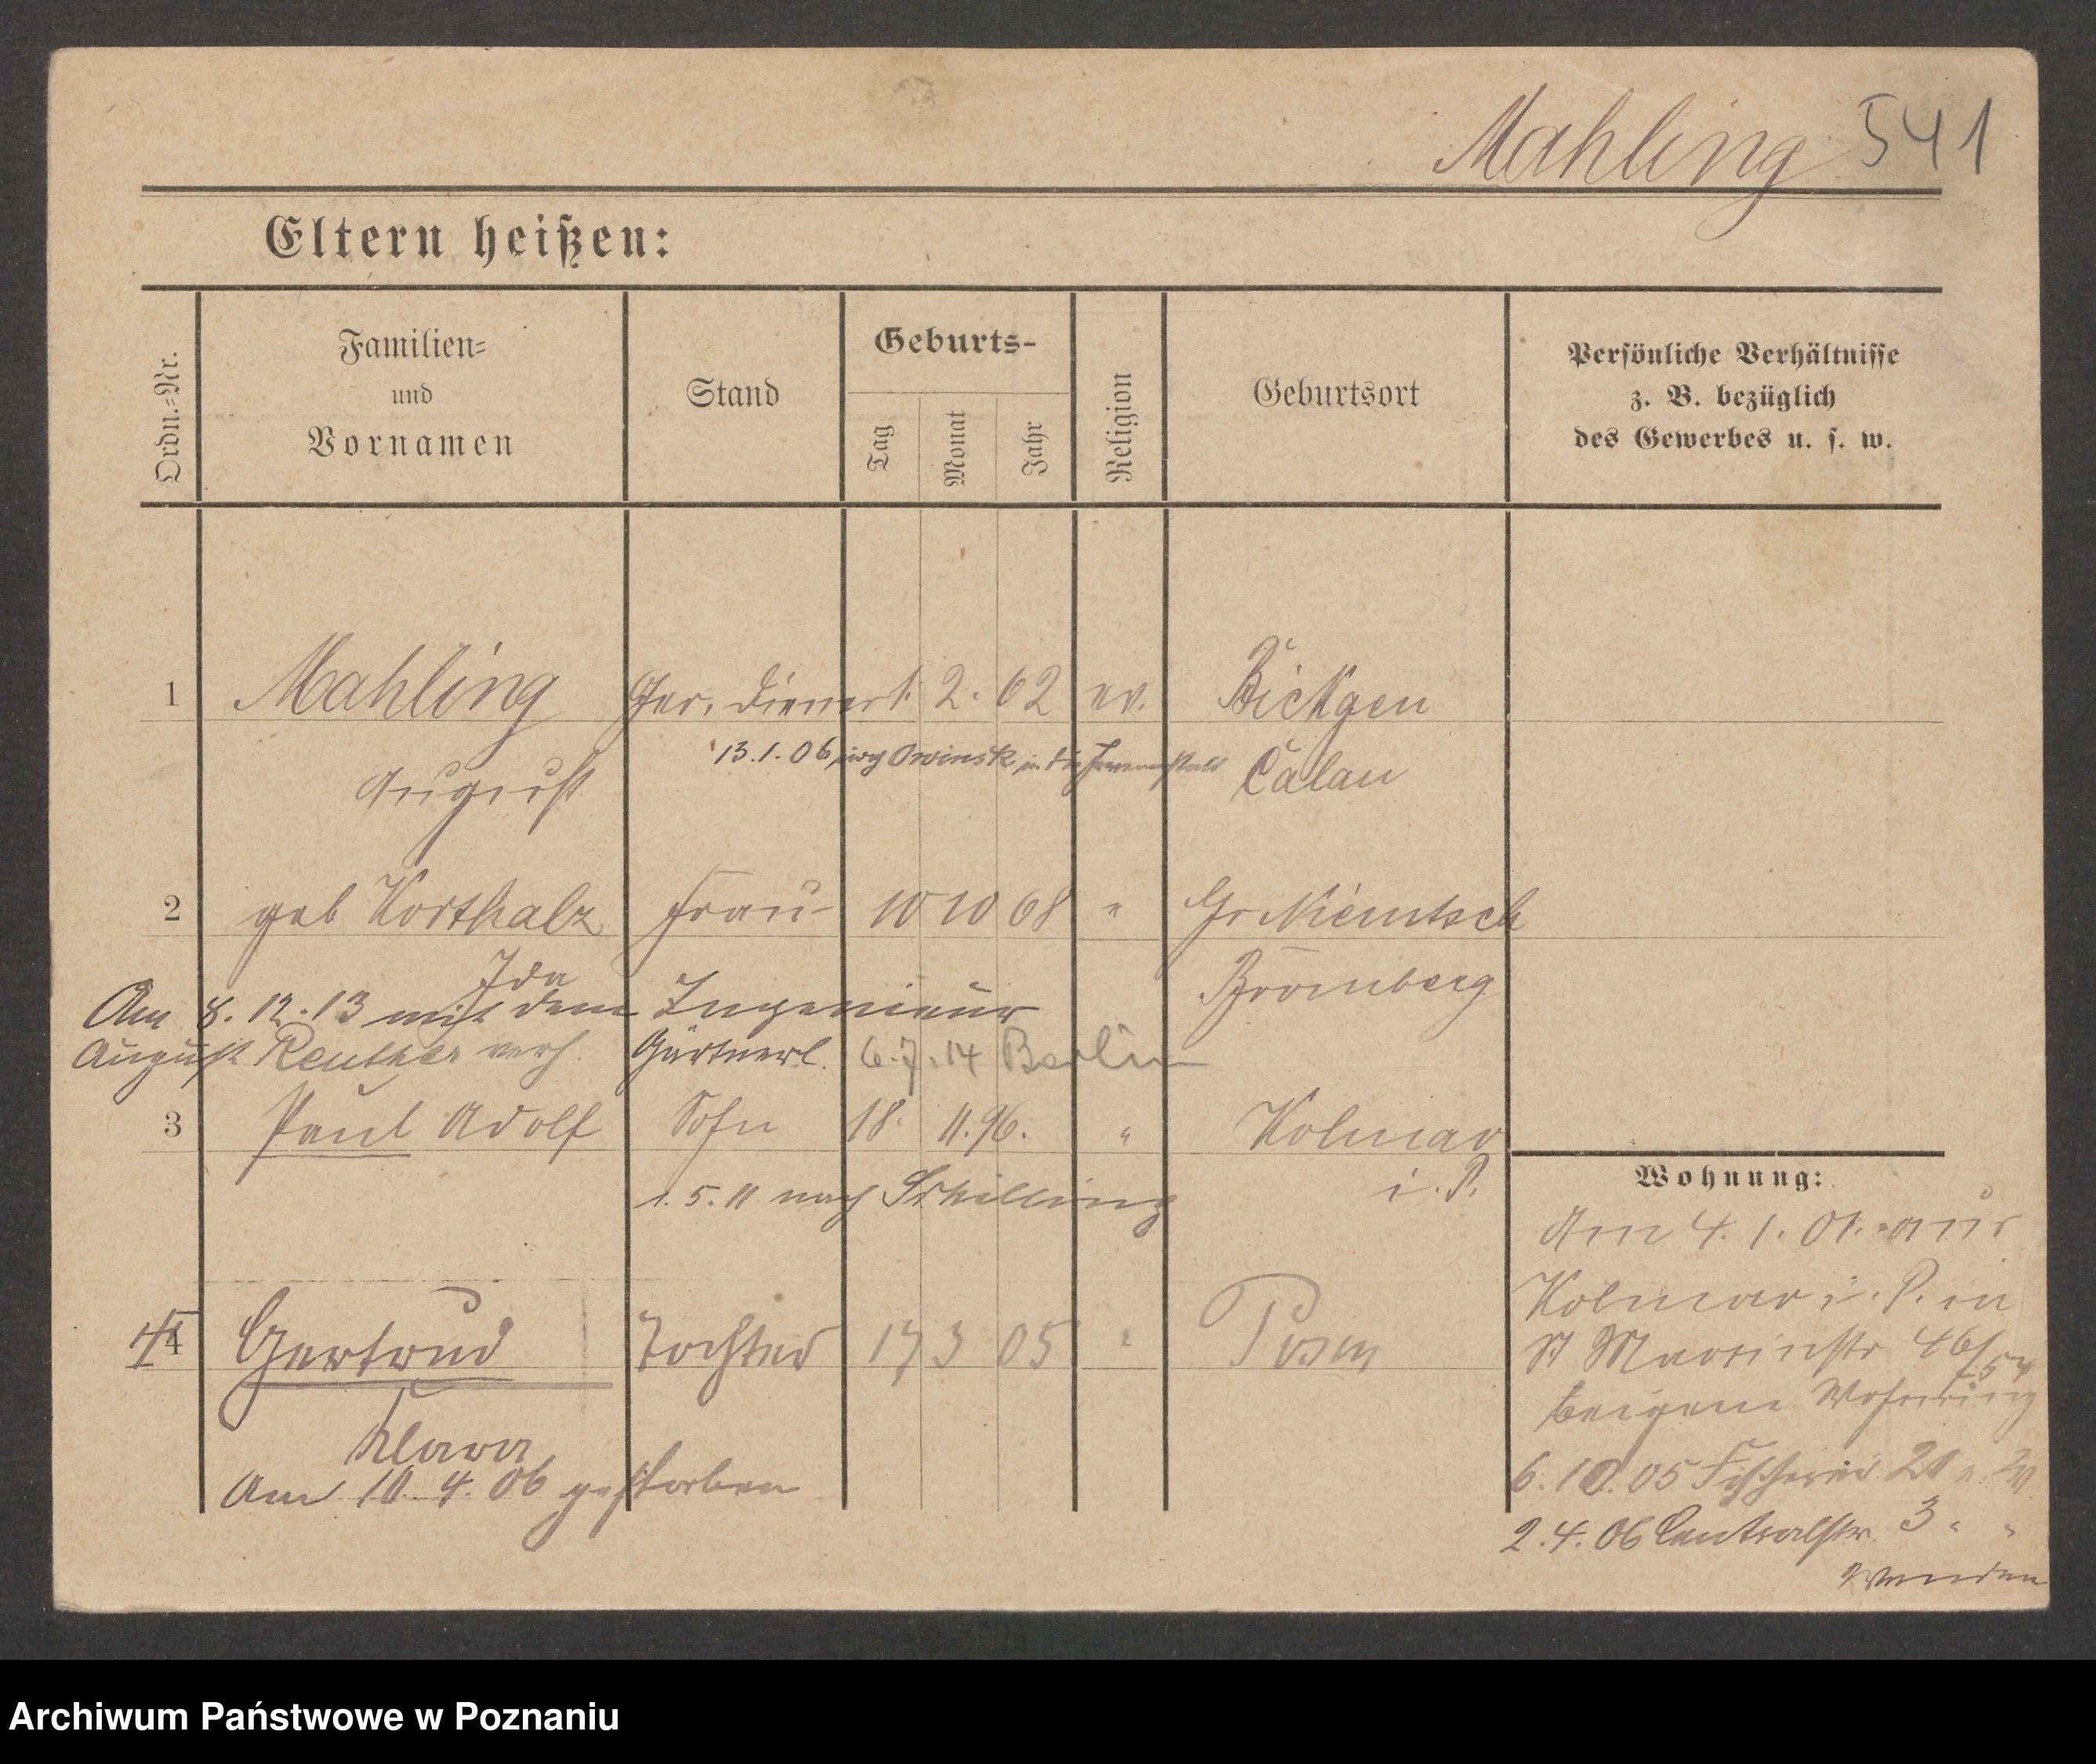 Mahling 541
Eltern heißen:
Ordn.-Nr.
Familien-
und
Vornamen
Stand
Geburts-
Tag
Monat
Jahr
Religion
Geburtsort
Persönliche Verhältnisse
z. B. bezüglich
des Gewerbes u. s. w.
1 Mahling Ger. Diener 1. 2. 62 ev. Bickgen
13.1.06 nach Owinsk in die Irrenanstalt
August Calau
2 geb Korthalz Frau 10 10 68 " Gr Niemtsch
Ida
Bromberg
Am 8.12.13 mit dem Ingenieur
August Reuther verh. Gärtnerl. 6.7.14 Berlin
3 Paul Adolf Sohn 18. 11. 96. " Kolmar
i. P.
1.5.11 nach Schilling
4 Gertrud Tochter 17 3 05 " Posen
Klara
Am 10.4.06 gestorben
Wohnung:
Am 4.1.01. aus
Kolmar i. P. in
St Martinstr 46/54
bei eigene Wohnung
6.10.05 Fischerei 20 e. W
2.4.06 Centralstr. 3 " "
Wenden
Archiwum Państwowe w Poznaniu